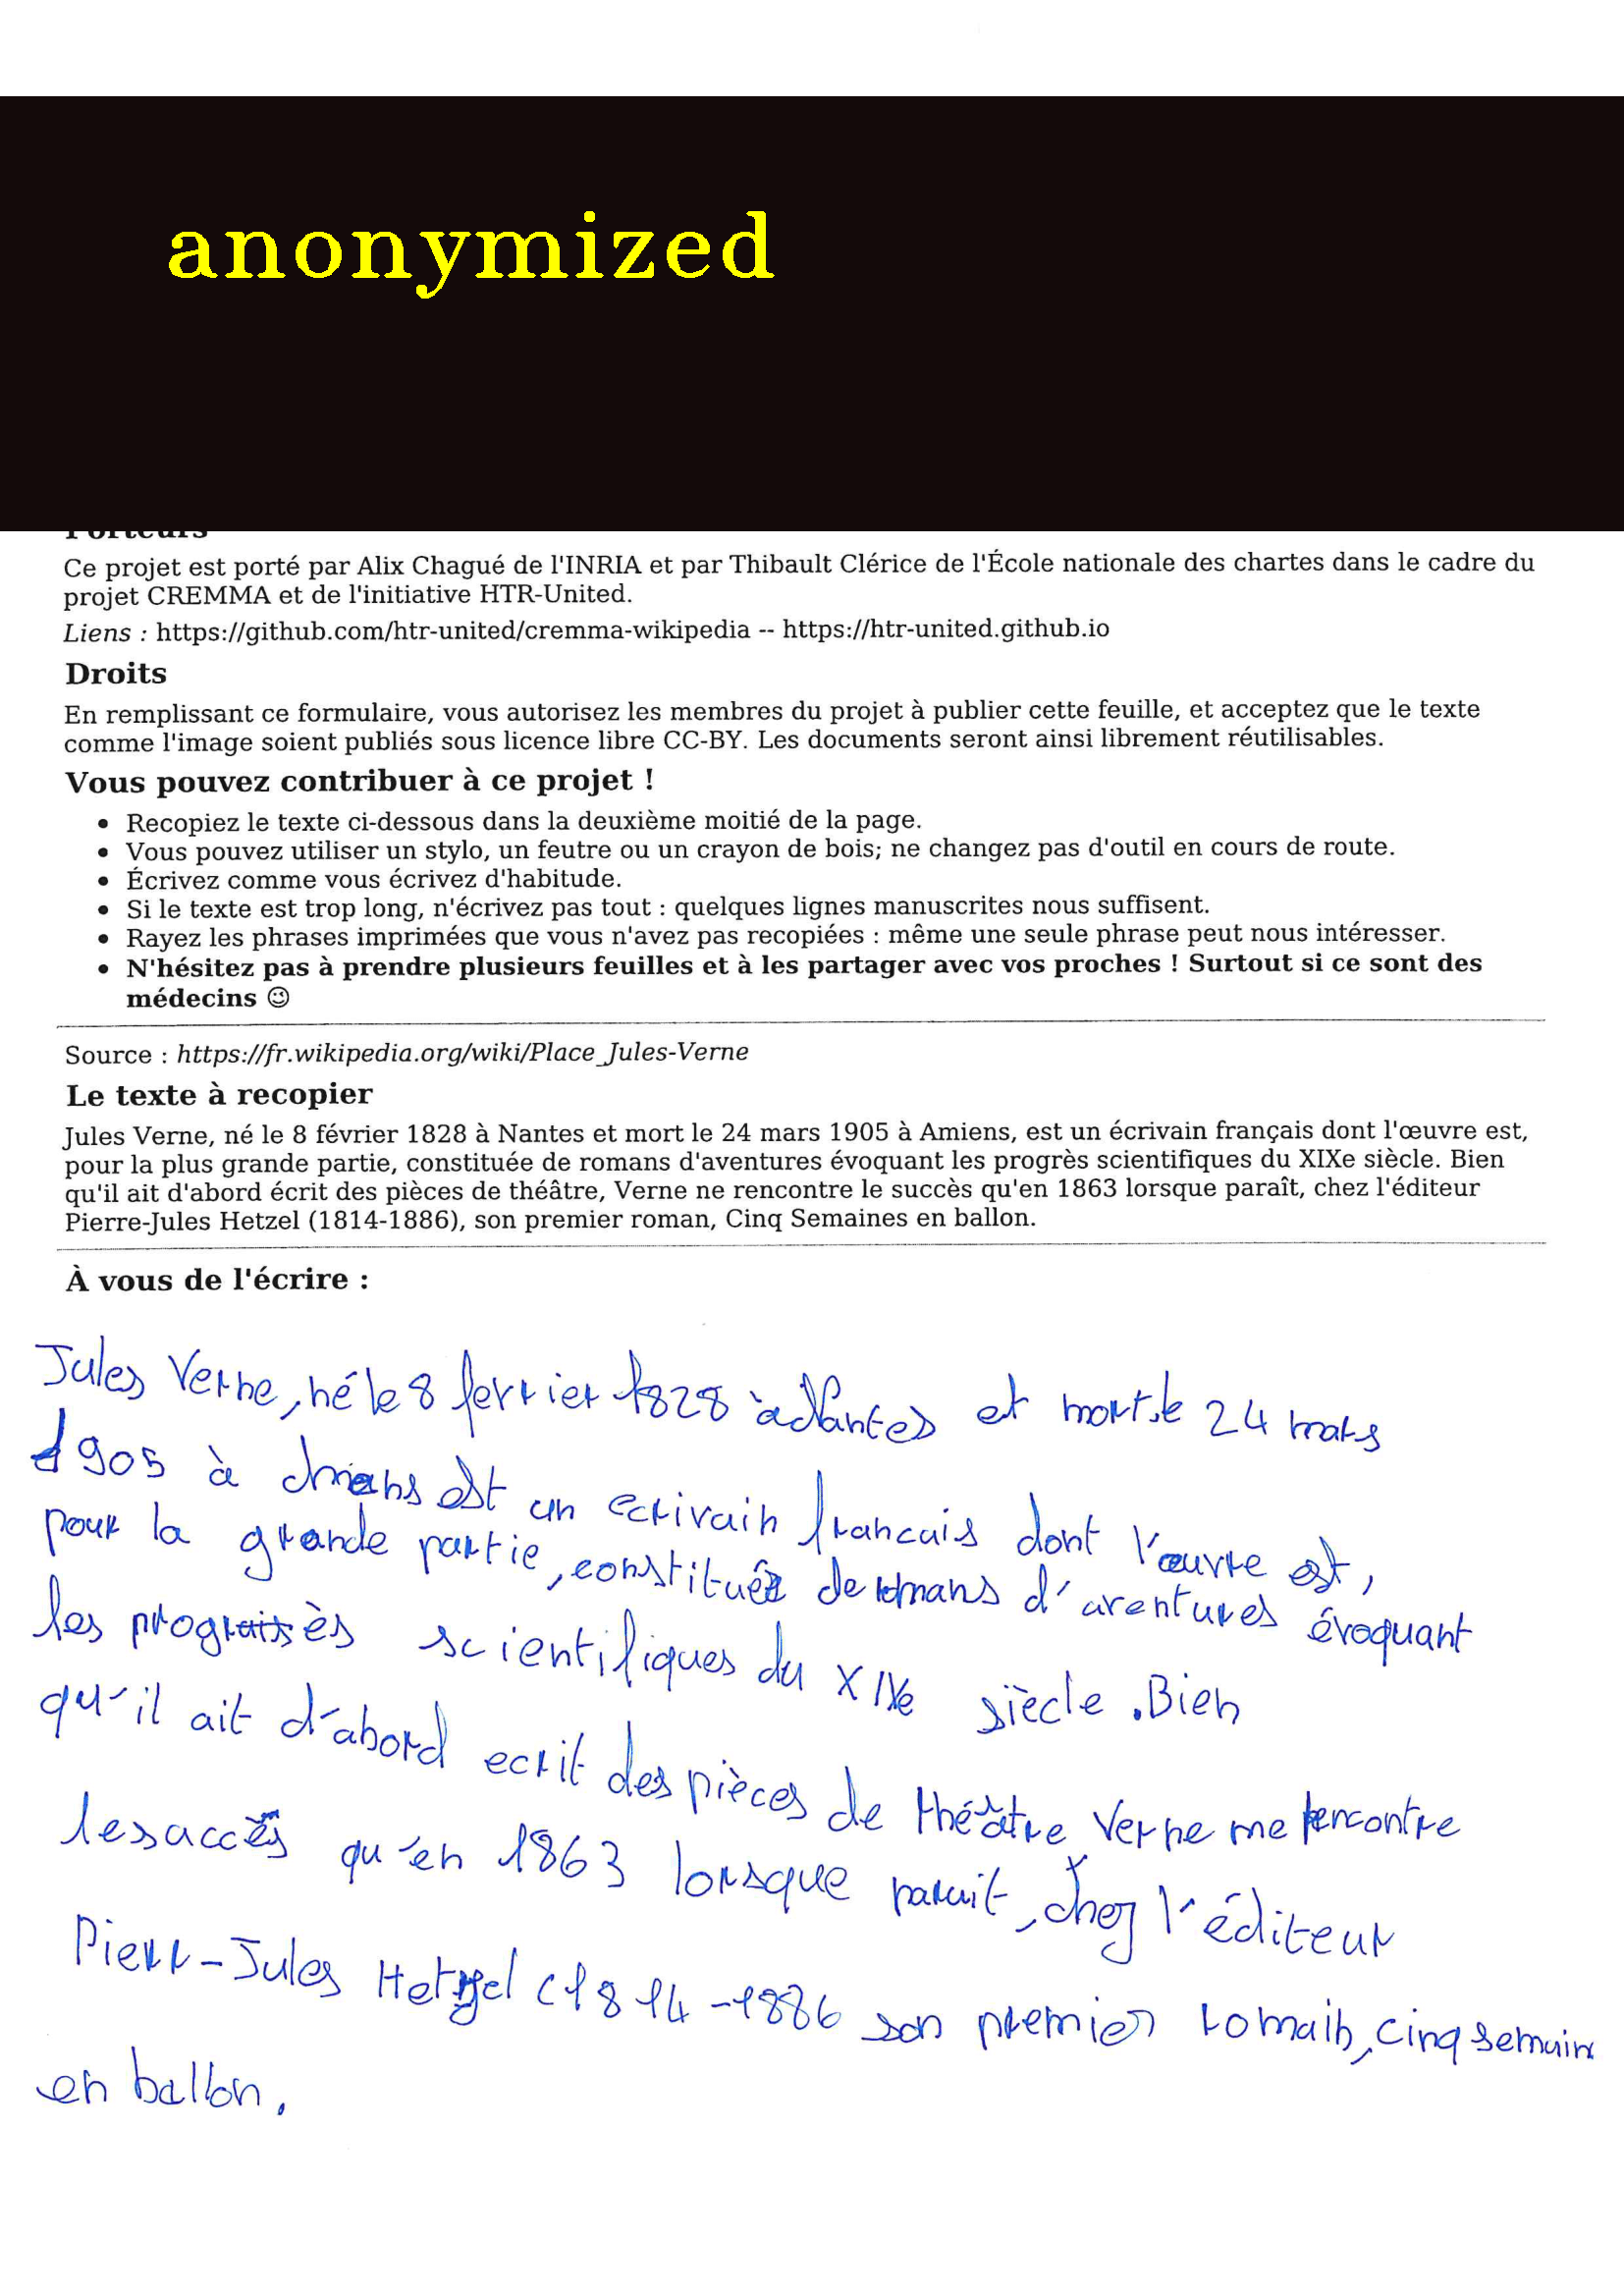 anonymized
Porteurs
Ce projet est porté par Alix Chagué de l'INRIA et par Thibault Clérice de l'École nationale des chartes dans le cadre du
projet CREMMA et de l'initiative HTR-United.
Liens : https://github.com/htr-united/cremma-wikipedia -- https://htr-united.github.io
Droits
En remplissant ce formulaire, vous autorisez les membres du projet à publier cette feuille, et acceptez que le texte
comme l'image soient publiés sous licence libre CC-BY. Les documents seront ainsi librement réutilisables.
Vous pouvez contribuer à ce projet !
• Recopiez le texte ci-dessous dans la deuxième moitié de la page.
• Vous pouvez utiliser un stylo, un feutre ou un crayon de bois; ne changez pas d'outil en cours de route.
• Écrivez comme vous écrivez d'habitude.
• Si le texte est trop long, n'écrivez pas tout : quelques lignes manuscrites nous suffisent.
• Rayez les phrases imprimées que vous n'avez pas recopiées : même une seule phrase peut nous intéresser.
• N'hésitez pas à prendre plusieurs feuilles et à les partager avec vos proches ! Surtout si ce sont des
médecins 😉
Source : https://fr.wikipedia.org/wiki/Place_Jules-Verne
Le texte à recopier
Jules Verne, né le 8 février 1828 à Nantes et mort le 24 mars 1905 à Amiens, est un écrivain français dont l'œuvre est,
pour la plus grande partie, constituée de romans d'aventures évoquant les progrès scientifiques du XIXe siècle. Bien
qu'il ait d'abord écrit des pièces de théâtre, Verne ne rencontre le succès qu'en 1863 lorsque paraît, chez l'éditeur
Pierre-Jules Hetzel (1814-1886), son premier roman, Cinq Semaines en ballon.
À vous de l'écrire :
Jules Verne, né le 8 fevrier 1828 à Nantes et mort le 24 mars
1905 à Amens est un ecrivain francais dont l'œuvre est,
pour la grande partie, constituée de romans d'aventures évoquant
les progrès scientifiques du XIXe siècle. Bien
qu'il ait d'abord ecrit des pièces de théâtre Verne me rencontre
le saccès qu'en 1863 lorsque parait, chez l'éditeur
Pierr-Jules Hetzel (1814-1886 son premier romain, cinq semain
en ballon.